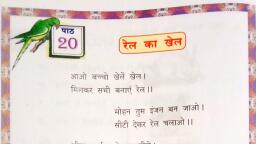 पाठ
20
रेल का खेल
आओ बच्चो खेलें खेल।
मिलकर सभी बनाएँ रेल।।
मोहन तुम इंजन बन जाओ।
सीटी देकर रेल चलाओ।।